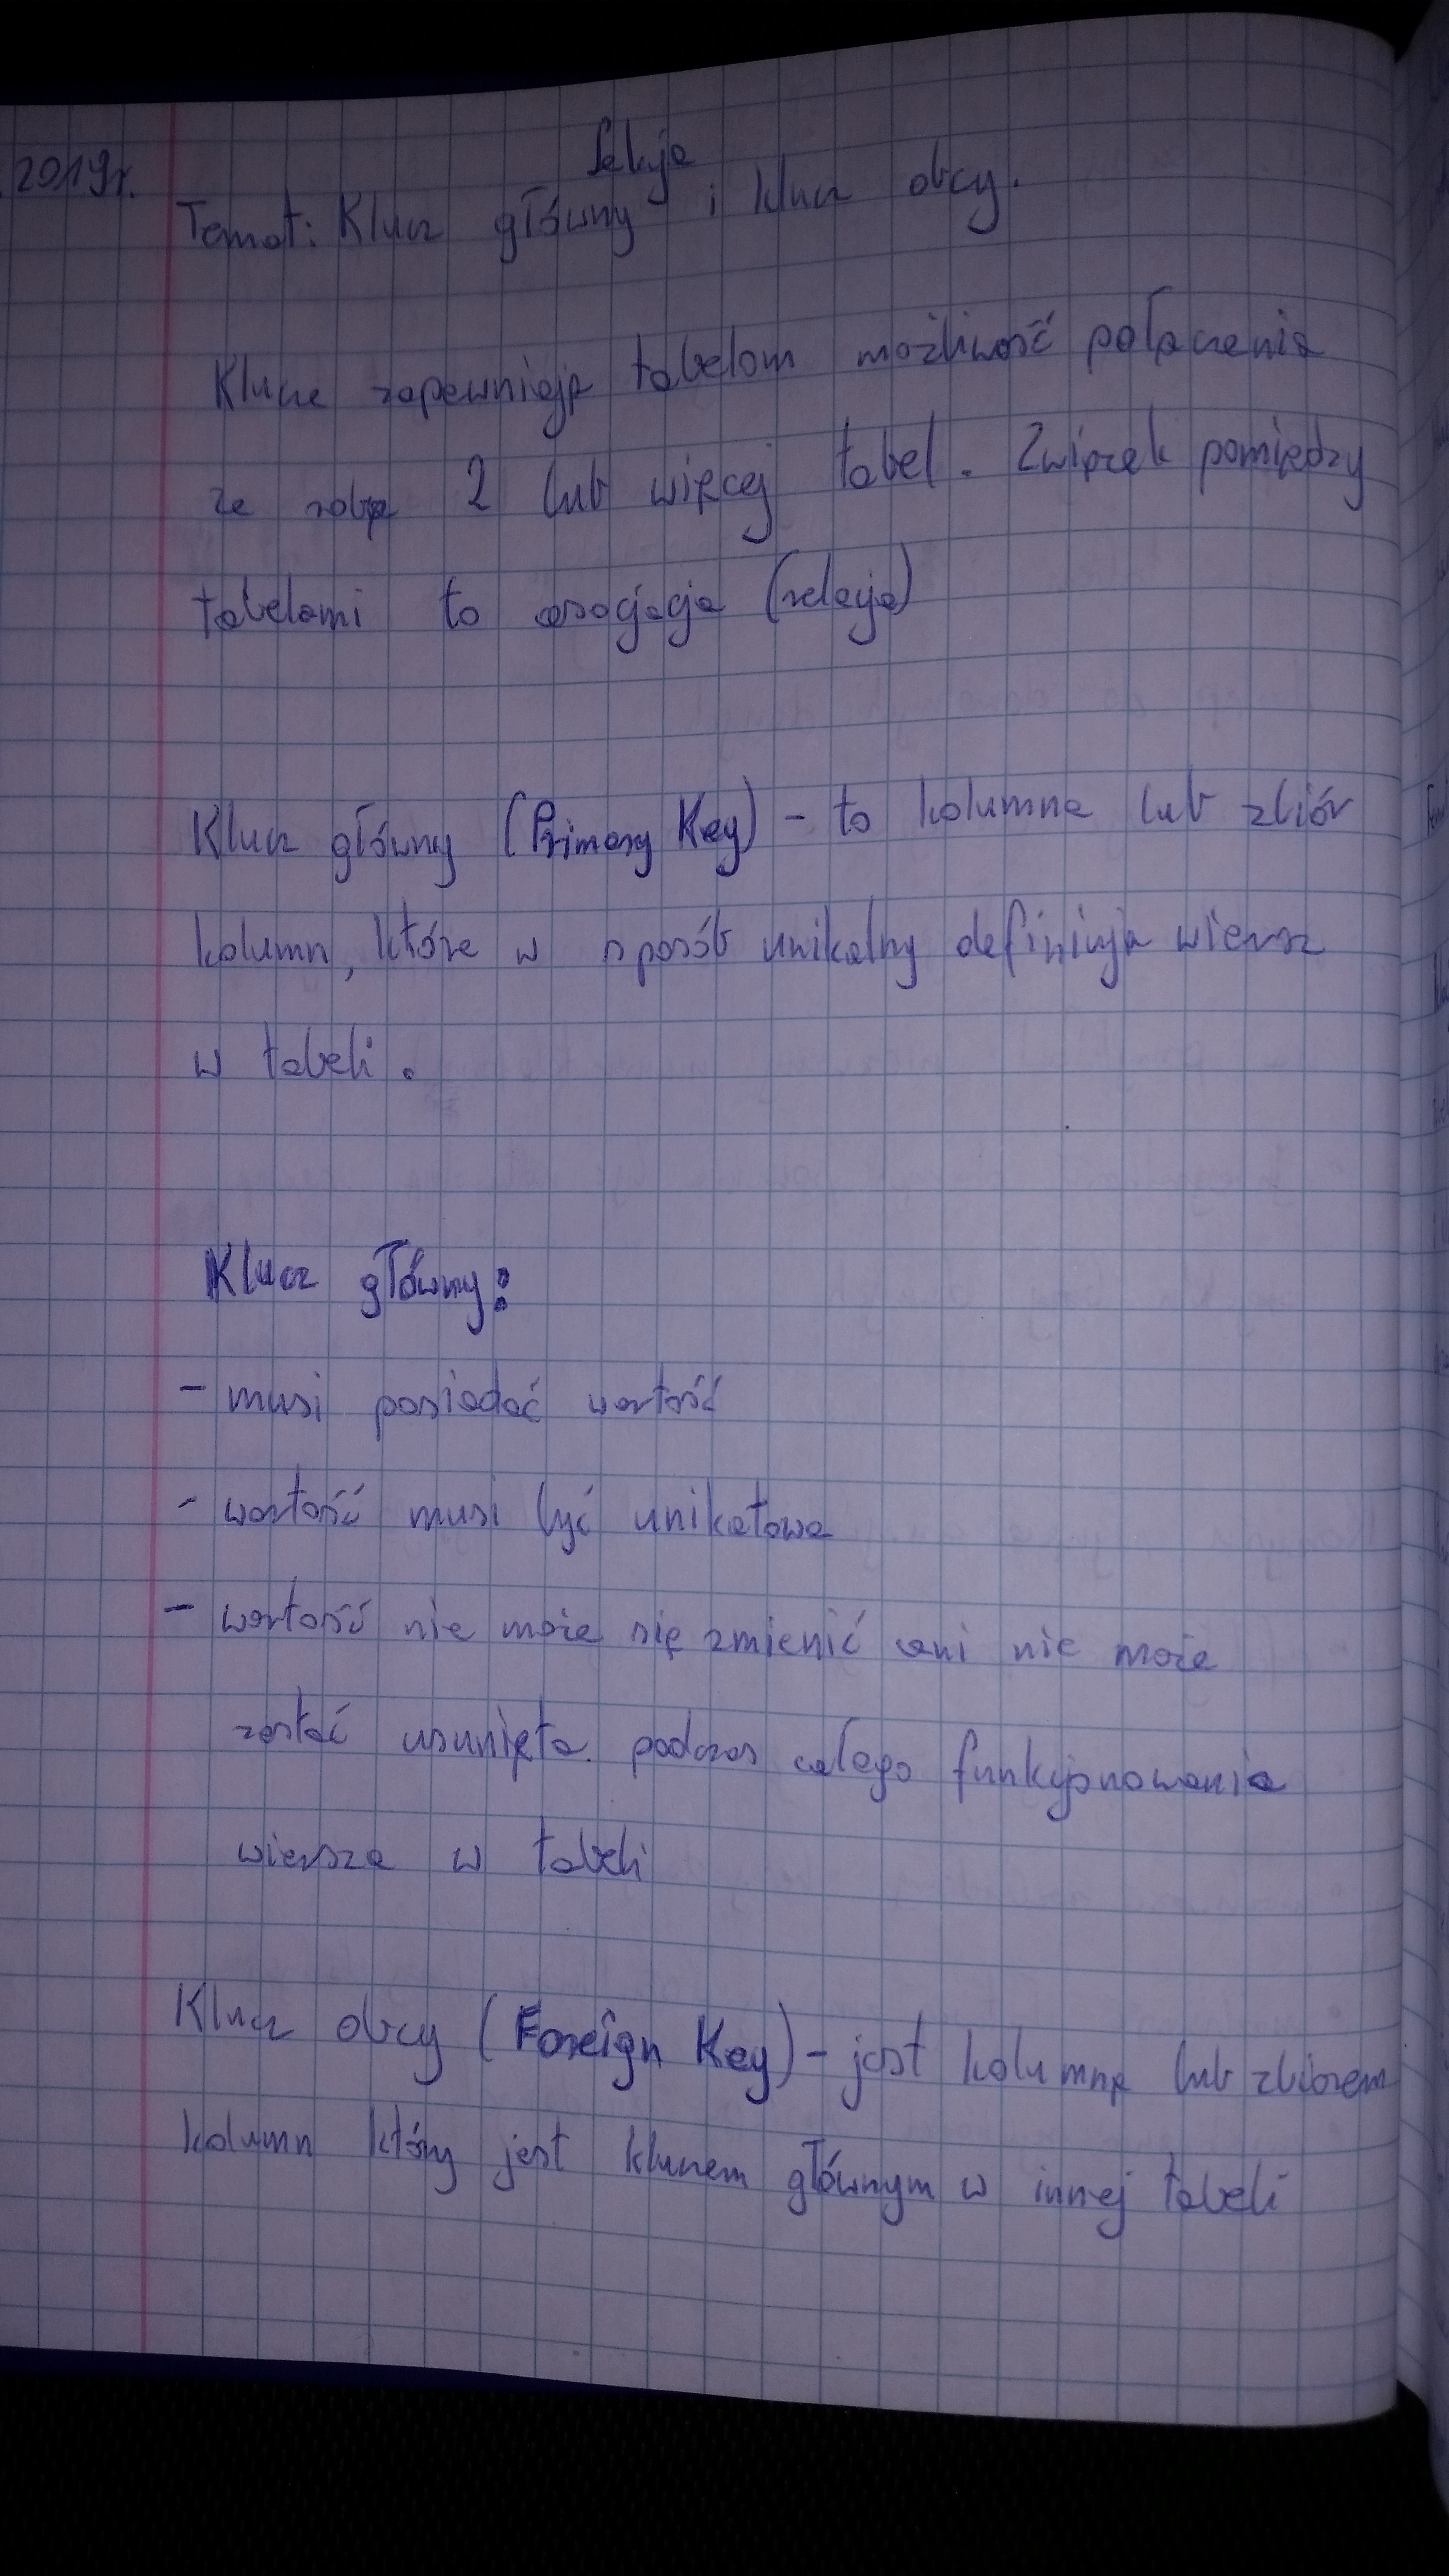 2019r.
Lekcja
Temat: Klucz główny i klucz obcy.
Klucze zapewniają tabelom możliwość połączenia
ze sobą 2 lub więcej tabel. Związek pomiędzy
tabelami to asocjacja (relacja)
Klucz główny (Primary Key) - to kolumna lub zbiór
kolumn, które w sposób unikalny definiują wiersz
w tabeli.
Klucz główny:
- musi posiadać wartość
- wartość musi być unikatowa
- wartość nie może się zmienić ani nie może
zostać usunięta podczas całego funkcjonowania
wiersza w tabeli
Klucz obcy (Foreign Key) - jest kolumną lub zbiorem
kolumn który jest kluczem głównym w innej tabeli